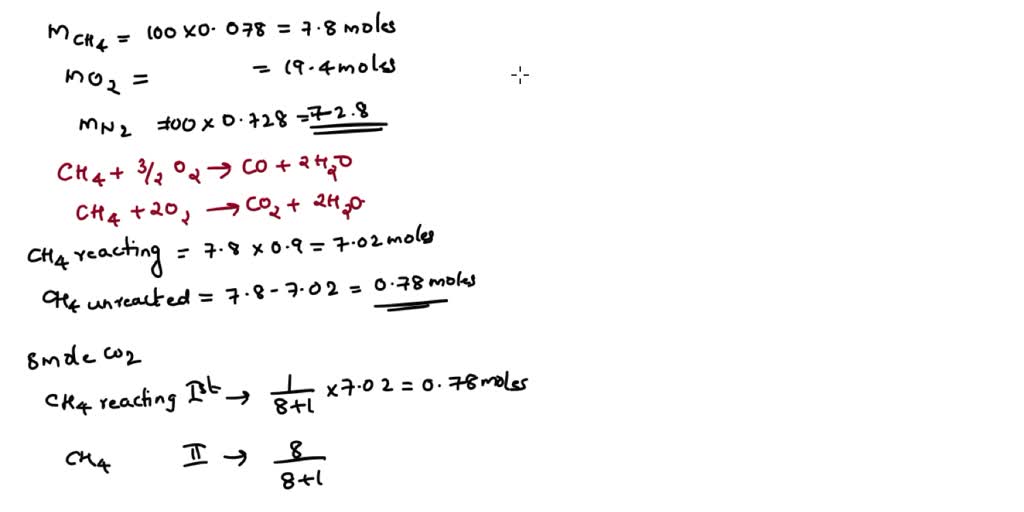 mCH4 = 100 x 0.078 = 7.8 moles
mO2 = = 19.4 moles
mN2 = 100 x 0.728 = 72.8
CH4 + 3/2 O2 → CO + 2H2O
CH4 + 2O2 → CO2 + 2H2O
CH4 reacting = 7.8 x 0.9 = 7.02 moles
CH4 unreacted = 7.8 - 7.02 = 0.78 moles
8 mole CO2
CH4 reacting Ist → 1/8+1 x 7.02 = 0.78 moles
CH4 II → 8/8+1